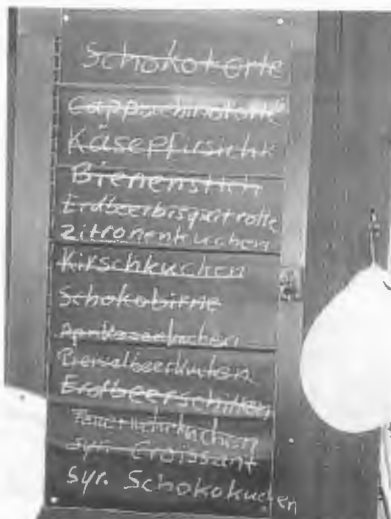 Schokotorte
Cappuchinotorte
Käsepfirsichk
Bienenstich
Erdbeerbisquitrolle
Zitronenkuchen
Kirschkuchen
Schokobirne
Aprikosenkuchen
Erdbeerschnitten
syr. Croissant
Syr. Schokokuchen